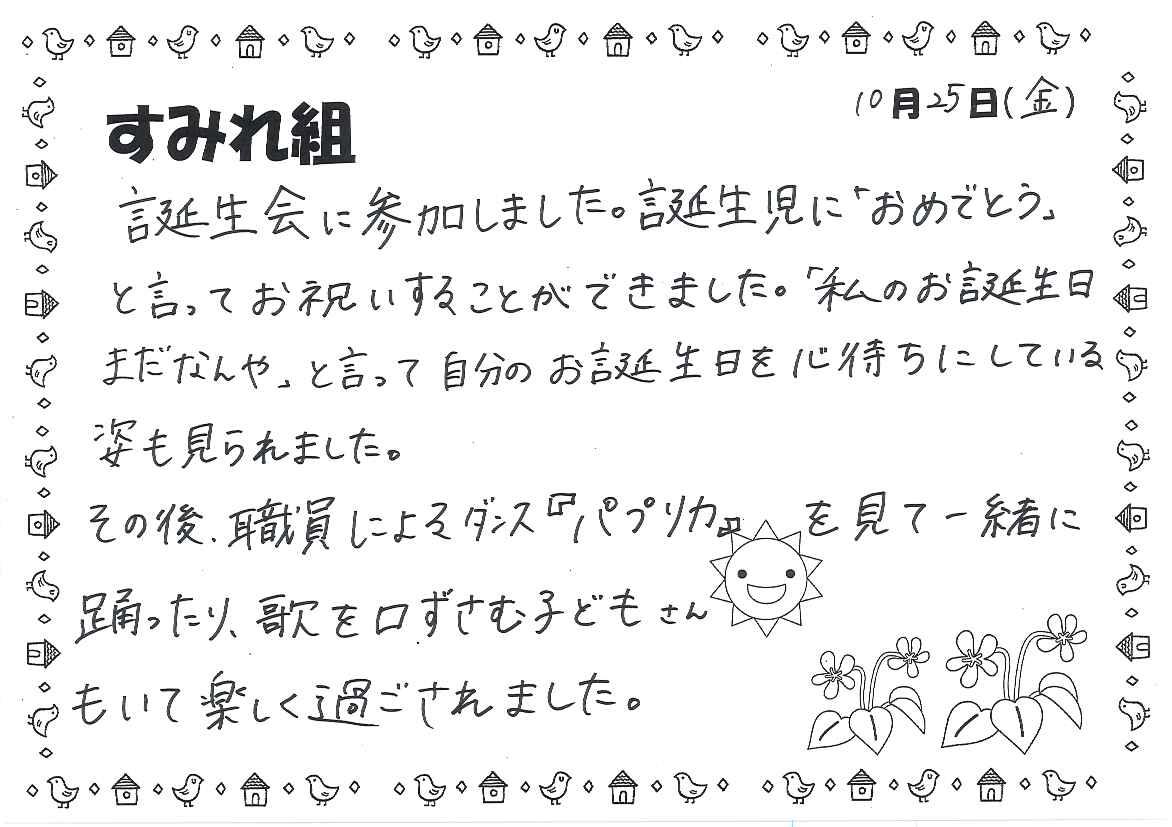 10月25日(金)
すみれ組
誕生会に参加しました。誕生児に「おめでとう」
と言ってお祝いすることができました。「私のお誕生日
まだなんや」と言って自分のお誕生日を心待ちにしている
姿も見られました。
その後、職員によるダンス『パプリカ』を見て一緒に
踊ったり、歌を口ずさむ子どもさん
もいて楽しく過ごされました。